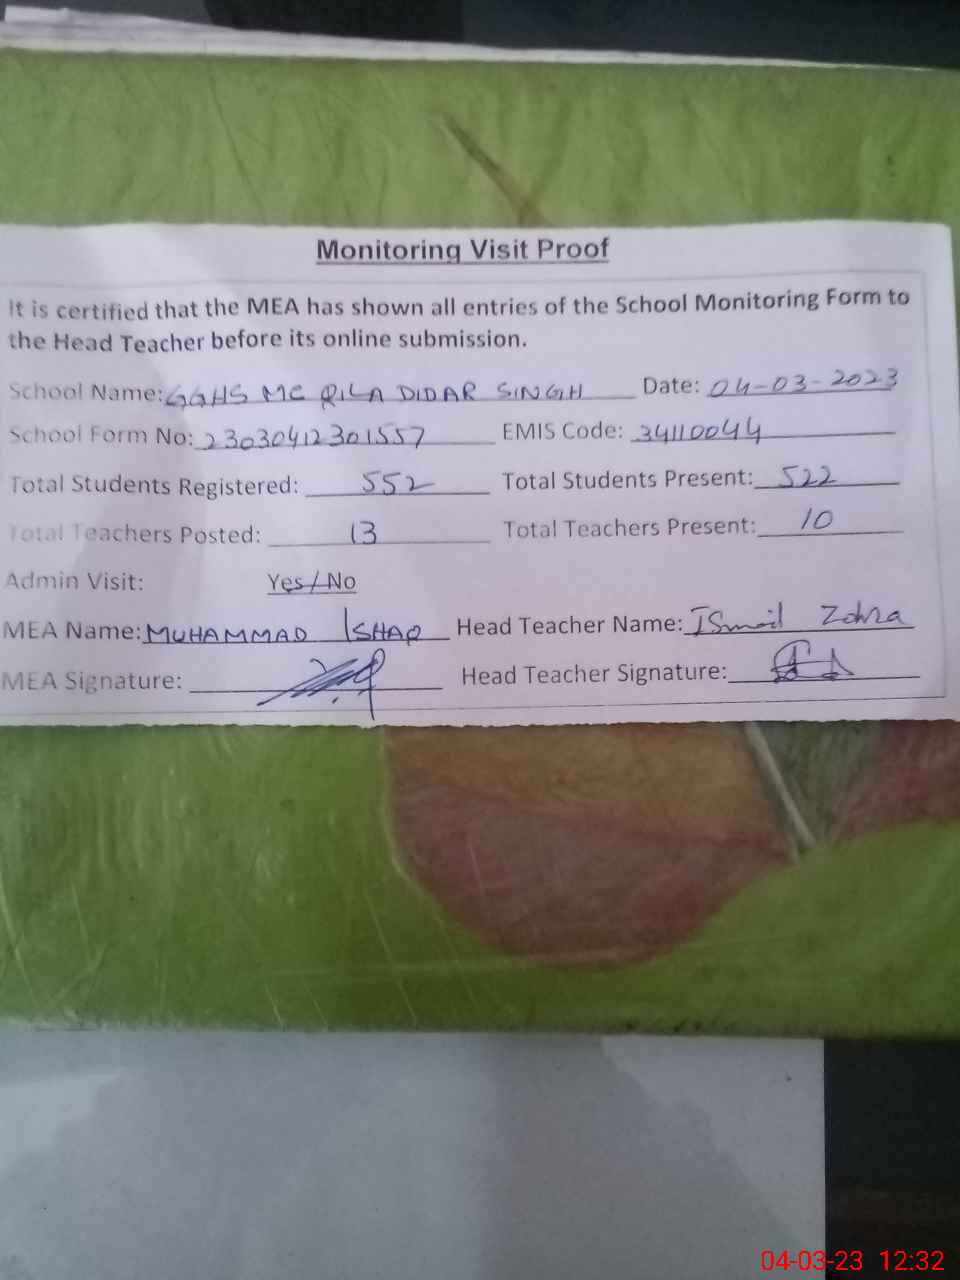 Monitoring Visit Proof
It is certified that the MEA has shown all entries of the School Monitoring Form to
the Head Teacher before its online submission.
School Name: GGHS MC QILA DIDAR SINGH Date: 04-03-2023
School Form No: 23030412301557 EMIS Code: 34110044
Total Students Registered: 552 Total Students Present: 522
Total Teachers Posted: 13 Total Teachers Present: 10
Admin Visit: Yes/No
MEA Name: MUHAMMAD ISHAQ Head Teacher Name: ISmail Zohra
MEA Signature: Head Teacher Signature:
04-03-23 12:32